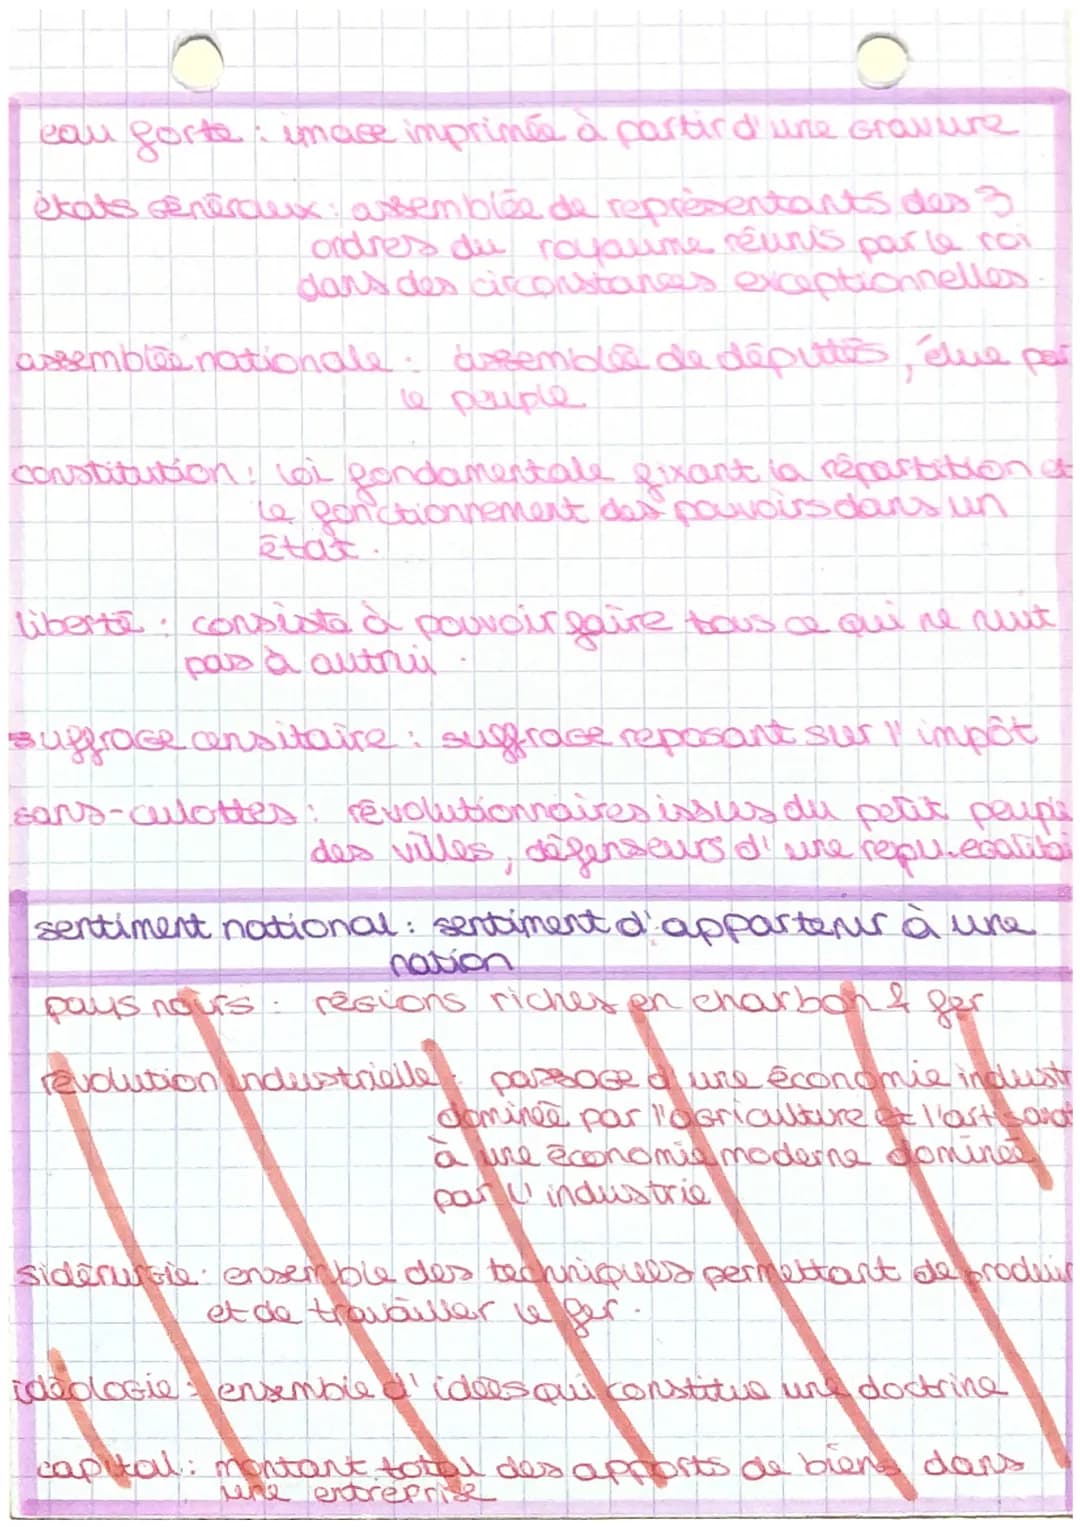 eau forte : image imprimée à partir d'une gravure
états généraux : assemblée de représentants des 3
ordres du royaume réunis par le roi
dans des circonstances exceptionnelles.
assemblée nationale : assemblée de députés, élue par
le peuple
constitution : loi fondamentale fixant la répartition et
le fonctionnement des pouvoirs dans un
état.
liberté : consiste à pouvoir faire tous ce qui ne nuit
pas à autrui.
suffrage censitaire : suffrage reposant sur l'impôt
sans-culottes : révolutionnaires issus du petit peuple
des villes, défenseurs d'une repu. egalitai
sentiment national : sentiment d'appartenir à une
nation
pays noirs : régions riches en charbon & fer
révolution industrielle : passage d'une économie industr
dominée par l'agriculture et l'artisanat
à une économie moderne dominée
par l'industrie
sidérurgie : ensemble des techniques permettant de produir
et de travailler le fer.
idéologie : ensemble d'idées qui constitue une doctrine
capital : montant total des apports de biens dans
une entreprise